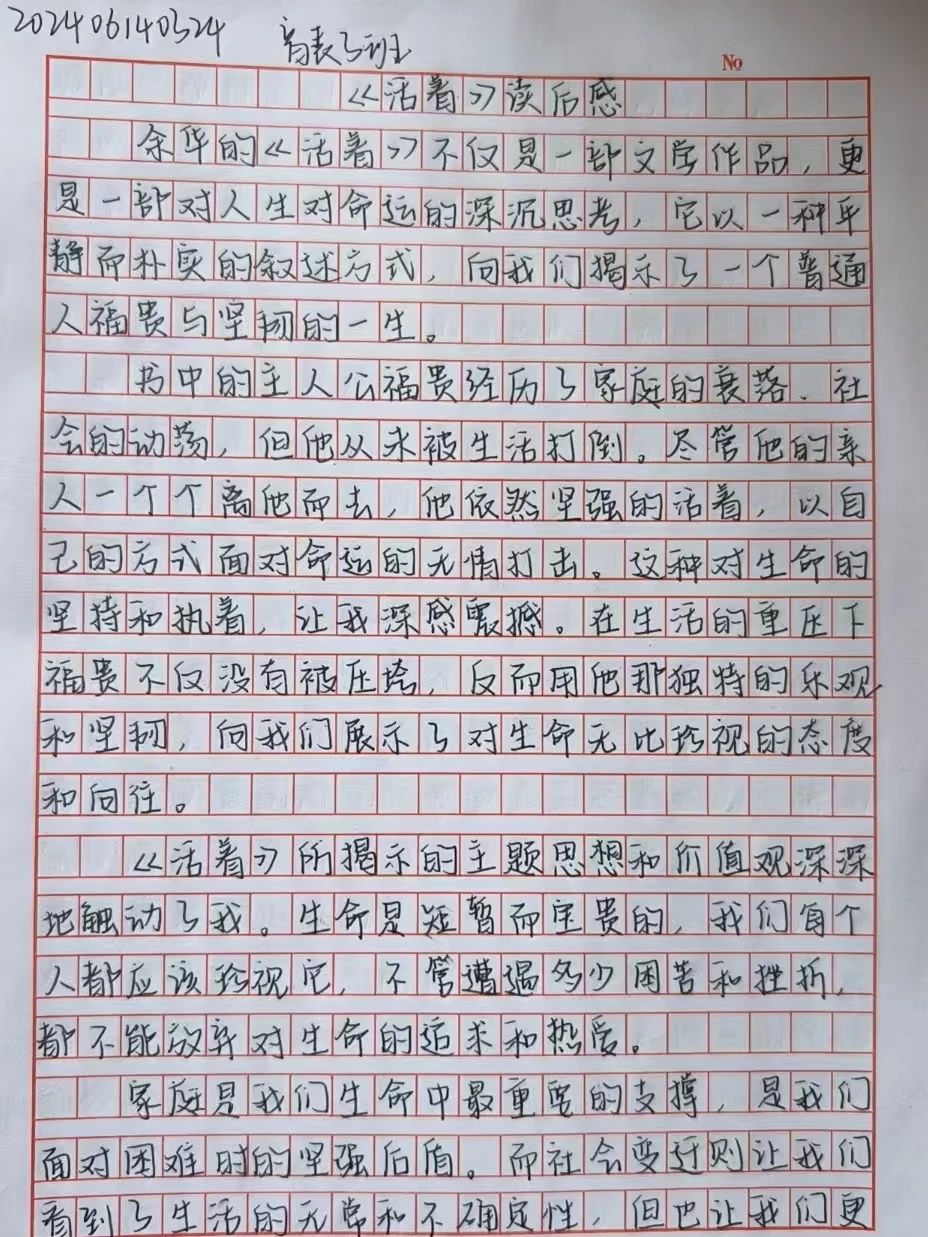 202406140324 音表3班
No
《活着》读后感
余华的《活着》不仅是一部文学作品，更
是一部对人生对命运的深沉思考，它以一种平
静而朴实的叙述方式，向我们揭示了一个普通
人福贵与坚韧的一生。
书中的主人公福贵经历了家庭的衰落、社
会的动荡，但他从未被生活打倒。尽管他的亲
人一个个离他而去，他依然坚强的活着，以自
己的方式面对命运的无情打击。这种对生命的
坚持和执着，让我深感震撼。在生活的重压下
福贵不仅没有被压垮，反而用他那独特的乐观
和坚韧，向我们展示了对生命无比珍视的态度
和向往。
《活着》所揭示的主题思想和价值观深深
地触动了我。生命是短暂而宝贵的，我们每个
人都应该珍视它，不管遭遇多少困苦和挫折，
都不能放弃对生命的追求和热爱。
家庭是我们生命中最重要的支撑，是我们
面对困难时的坚强后盾。而社会变迁则让我们
看到了生活的无常和不确定性，但也让我们更